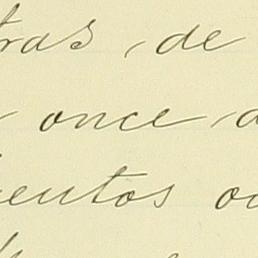 tras, de
once
ientos oc